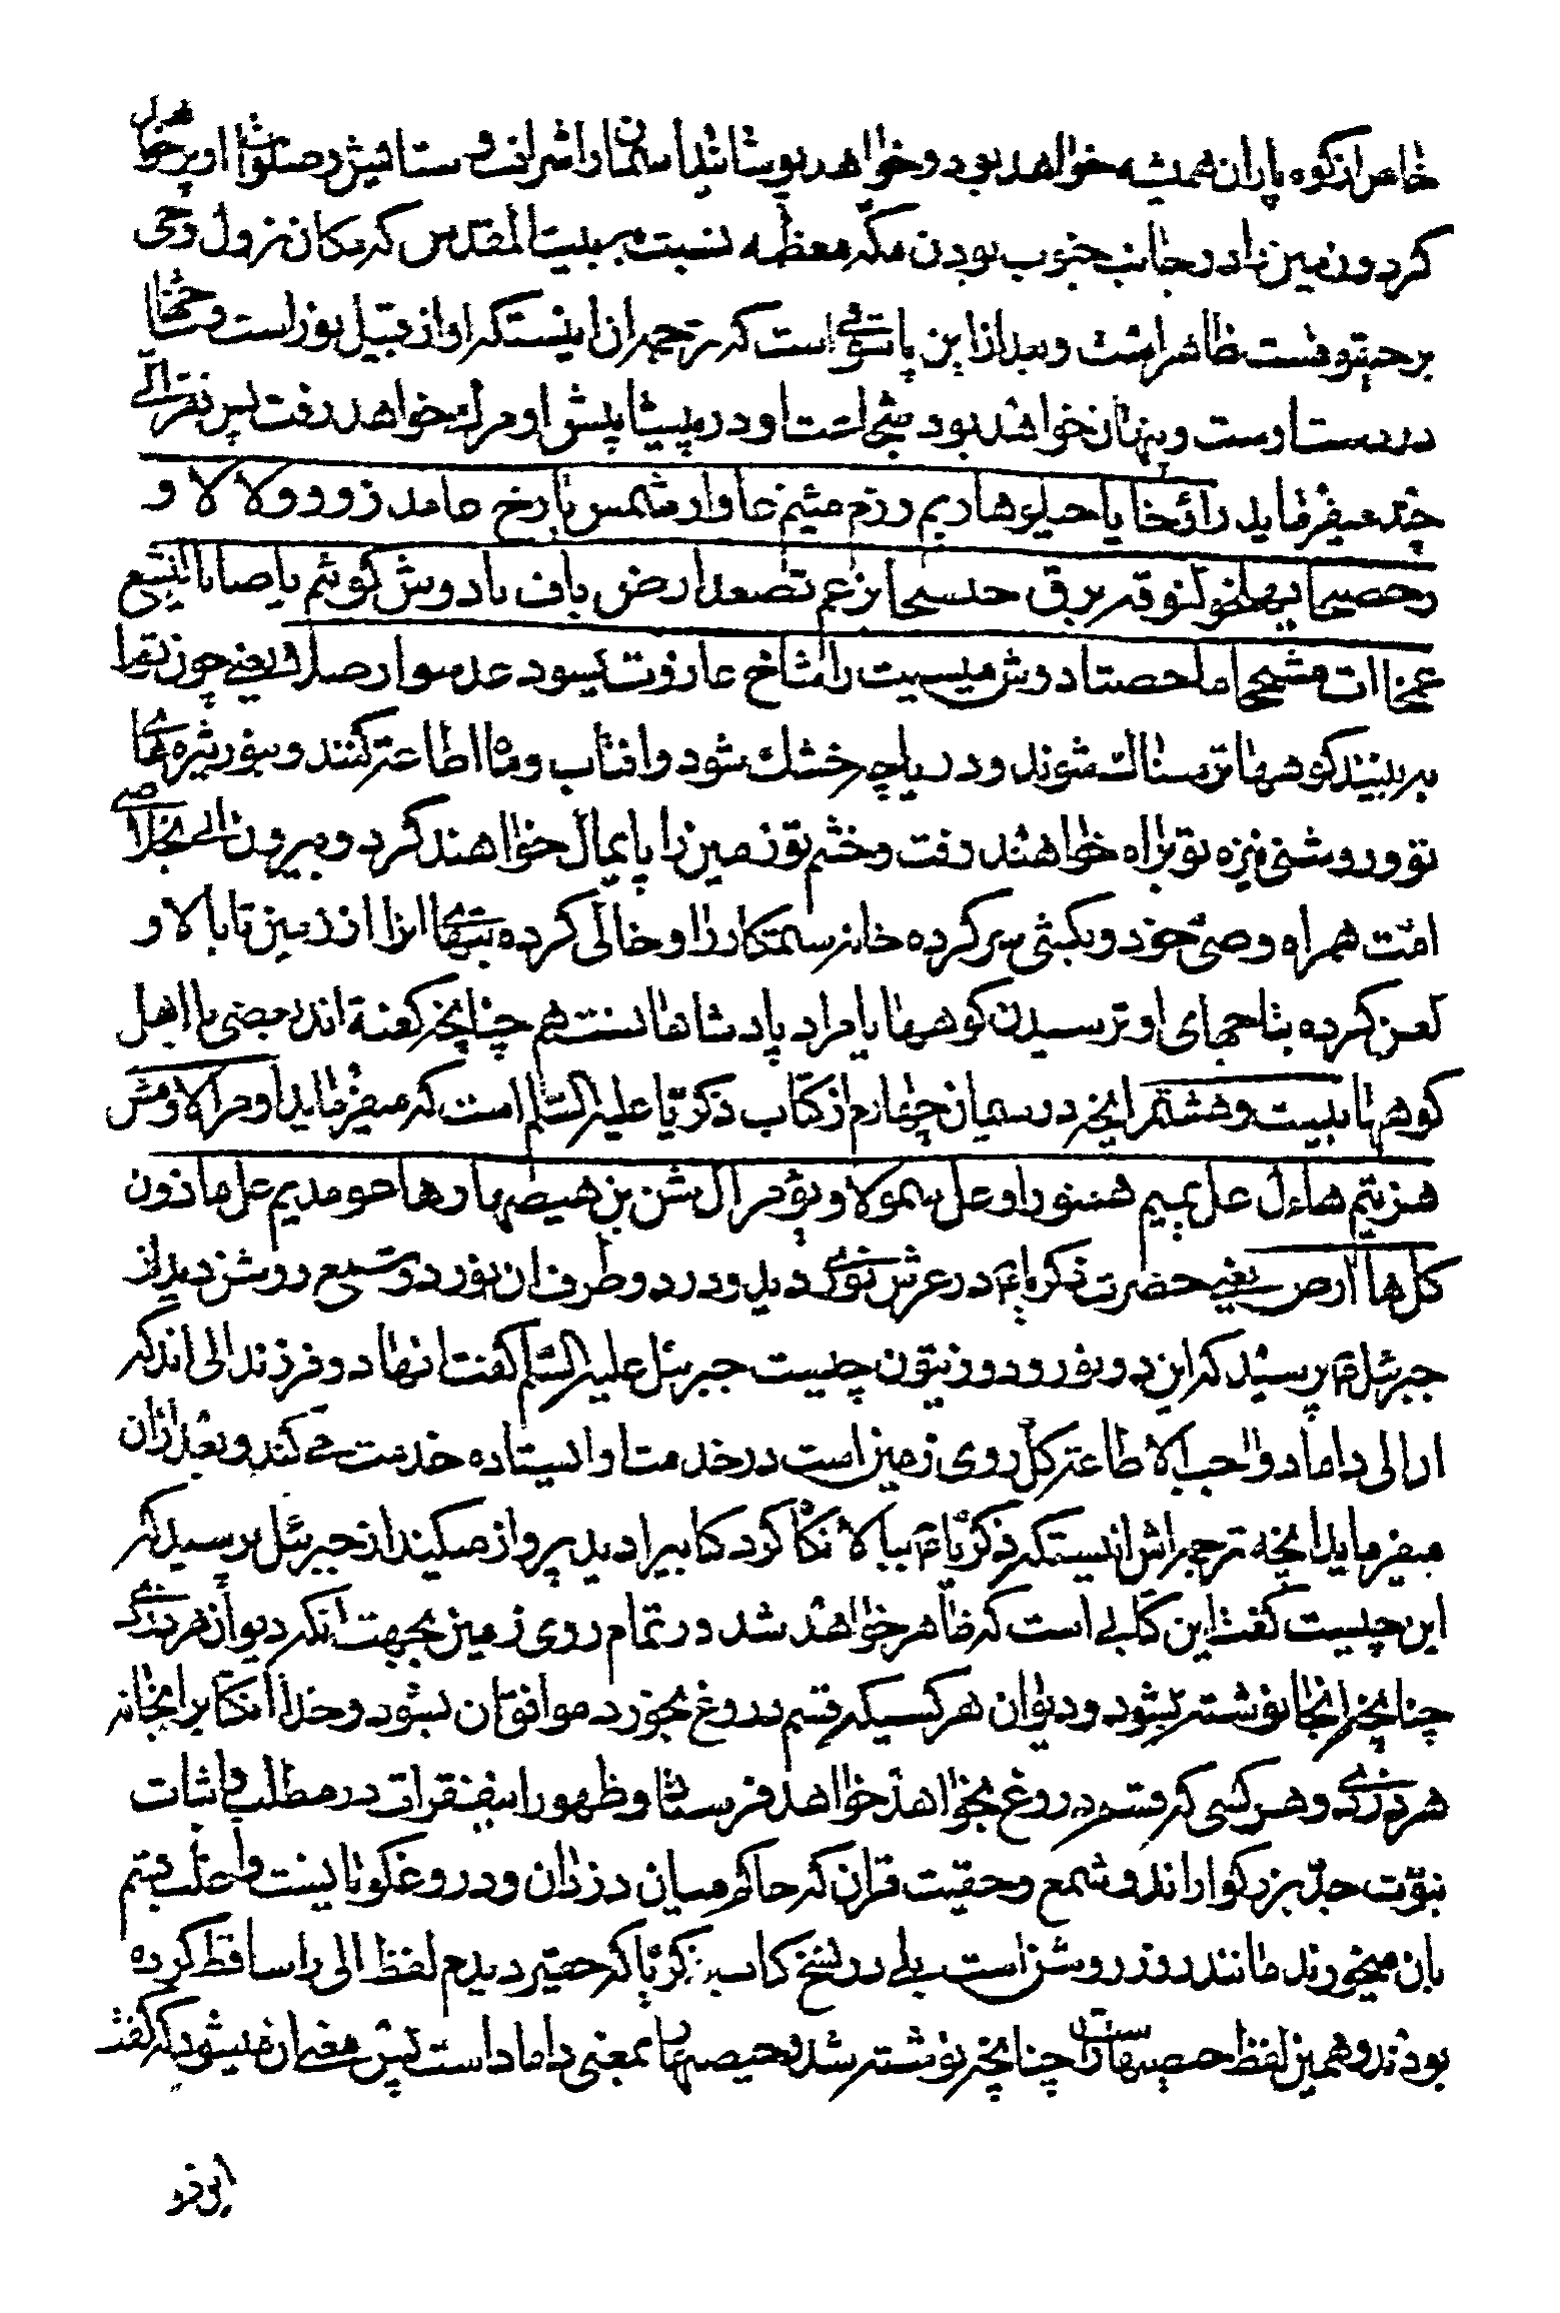 خاص از کوه پاران همیشه خواهد بود و خواهد پوشانید اسمان را شرافت و ستایش و صلوة او پر خواهد
کرد و زمین را در جانب جنوب بودن مکه معظمه نسبت به بیت المقدس که مکان نزول وحی
بر حبقوق است ظاهر است و بعد از این پاسوقی است که ترجمه ان اینست که او از قبیل نور است و شاخها
در دست اوست و پنهان خواهد بود و در پیشاپیش او مرک خواهد رفت پس فقراتی
چند میفرماید راؤخا یاحیلو هاریم رزم میثیم عاوار شمس یارخ عامد زوولا لا و
رحصیحا یهلخو لنوقه برق حنسیحا بزعم تصعد ارض باف تادوش کوئیم یاصاتا لیشع
عمخا ات مشیحخا ماحصتا روش میبیت راشاخ عاروت یسود عد صوار صلا و یعنی چون تو را
به بینند کوهها ترسناک شوند و دریاچه خشک شود و افتاب و ماه اطاعت کنند و بنور تیرهای
تو و روشنی نیزه تو براه خواهند رفت و خشم تو زمین را پایمال خواهند کرد و بیرون ائی بخلاصی
امت همراه وصی خود و بکشی سر کرده خانه ستمکار را و خالی کرده بتیها انرا از زمین تا بالا و
لعن کرده بتاجهای او ترسیدن کوهها یا مراد پادشاها نست هم چنانچه گفته اند بعضی یا اهل
کوهها بیست و هشتم انچه در سیمان چهارم از کتاب ذکریا علیه السلم است که میفرماید اومر الاو مش
هنزیتیم هاءل عل یمیم هسنورا وعل سمولاو یؤمر ال شن بن هیصهار هاعومدیم عل مازون
کل ها ارص یعنی حضرت ذکریا ء در عرش نوری دید و در دو طرف ان نور دو شمع روشن دید از
جبرئیل ء پرسید که این دو نور و دو زیتون چیست جبرئیل علیه السلم گفت انها دو فرزند الی اند که
ار الی داماد واجب الاطاعت کل روی زمین است در خدمت او ایستاده خدمت می کند و بعد از ان
میفرماید انچه ترجمه اش اینست که ذکریا ء ببالا نگاه کرد کتابیرا دید پرواز میکند از جبرئیل پرسید که
این چیست گفت این کتابی است که ظاهر خواهد شد در تمام روی زمین بجهت انکه دیوان هر دزدی
چنانچه انجا نوشته میشود و دیوان هر کسیکه قسم دروغ بخورد موافق ان بشود و خدا ان کتابرا بخانه
هر دزدی و هر کسی که قسم دروغ بخواهد خواهد فرستاد و ظهور این فقرات در مطلب و اثبات
نبوت جد بزرگوار اندو شمع و حقیت قران که حاکم میان دزدان و دروغگویانست و اغلب قسم
بان میخورند مانند روز روشن است بلی در نسخ کتاب ذکریا که حقیر دیدم لفظ الی را ساقط کرده
بودند و همین لفظ حیصهار است چنانچه نوشته شد و حیصهار بمعنی داماد است پس معنی ان میشود که گفت
این دو